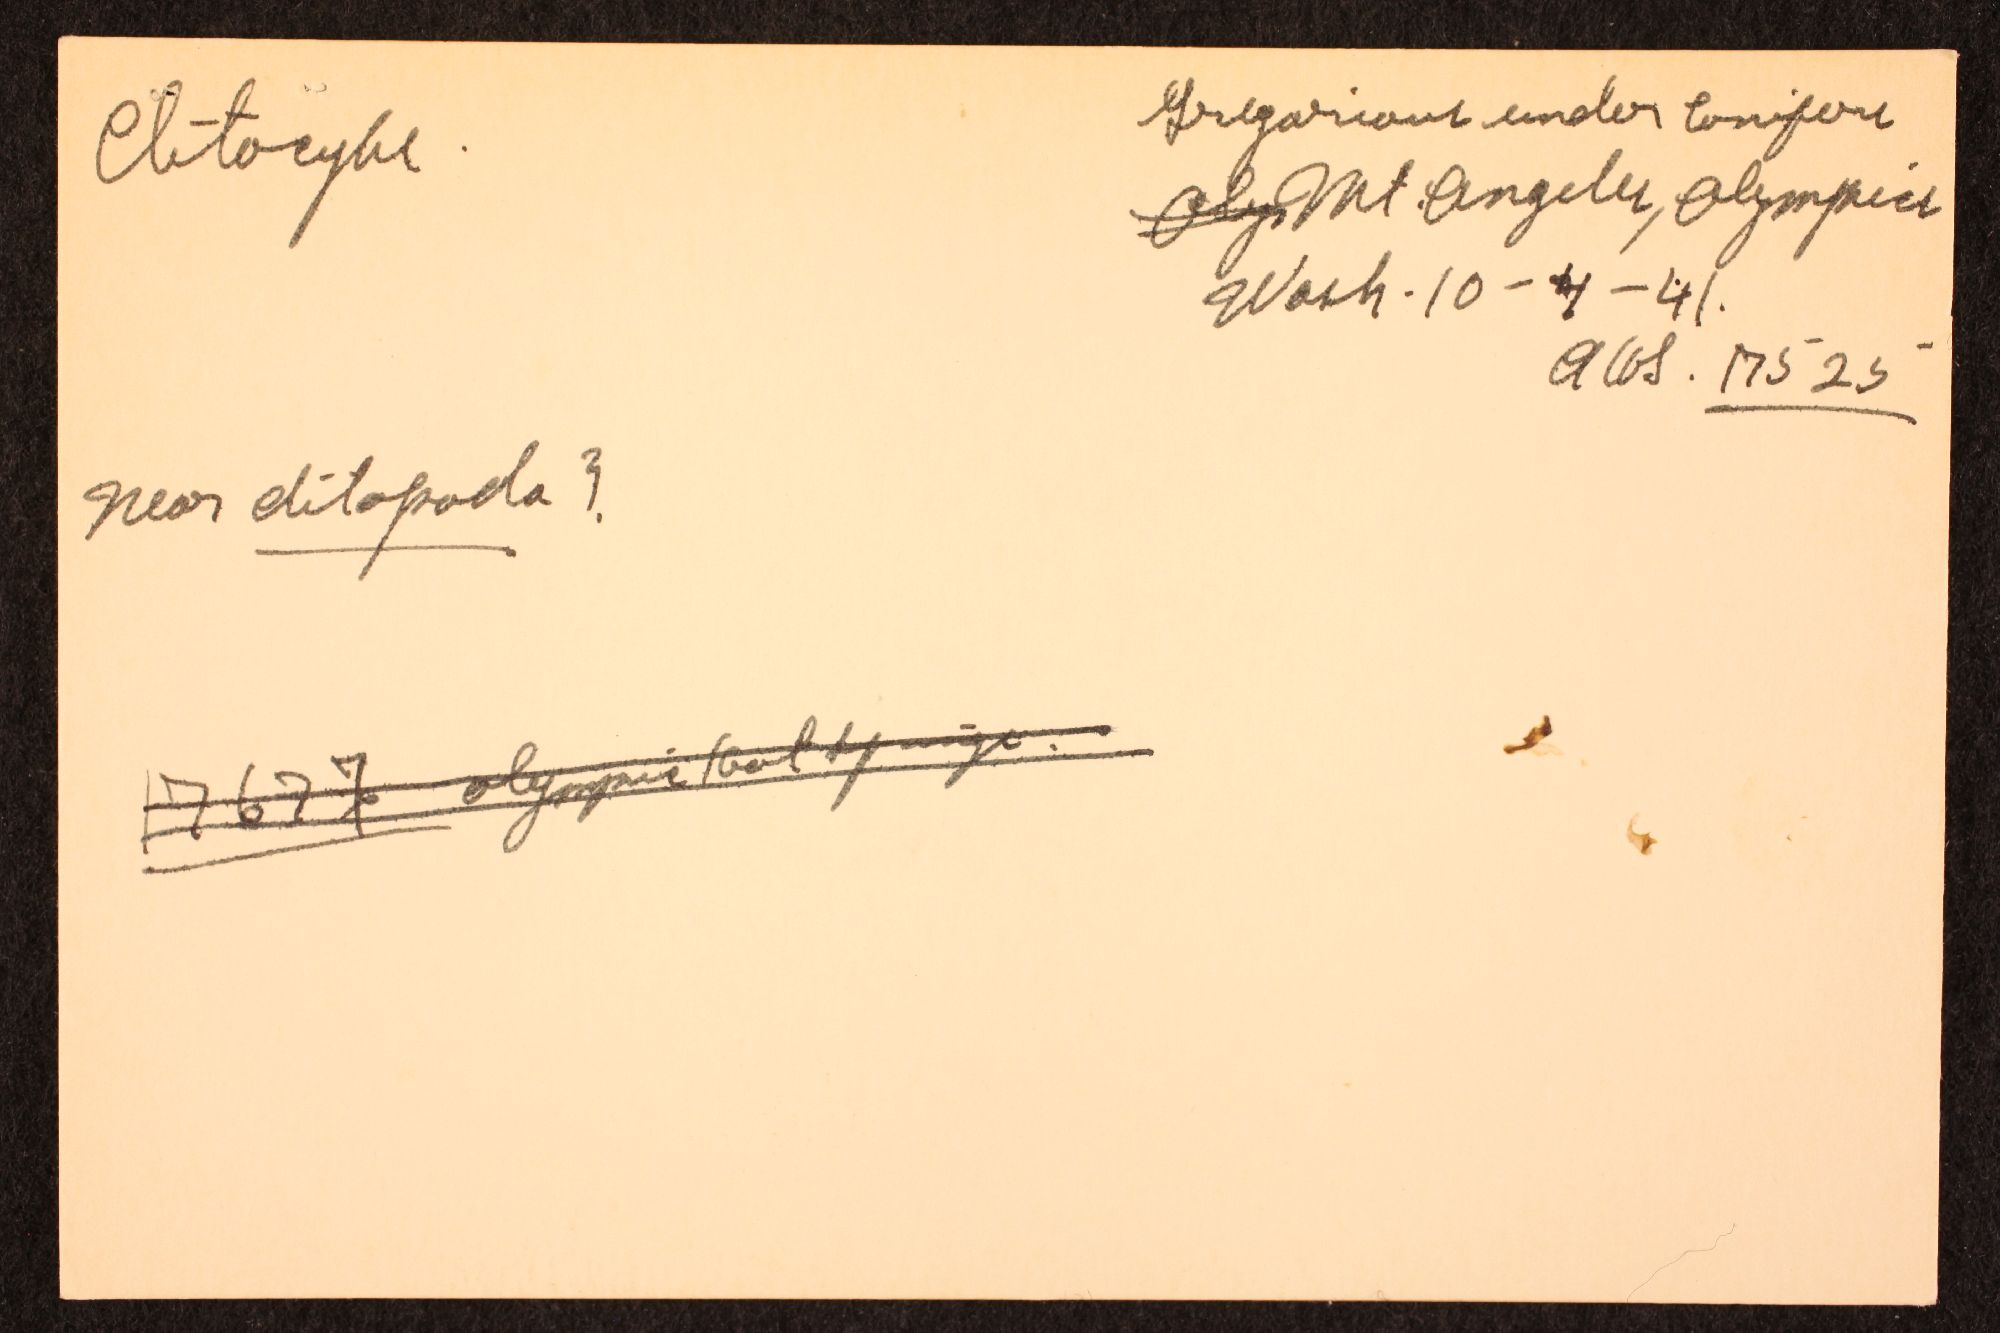 Clitocybe.
Gregarious under conifers
Oly. Mt. Angeles, Olympics
Wash. 10-4-41.
AHS. 17525
near ditopoda?
17677 Olympic Hot Springs.